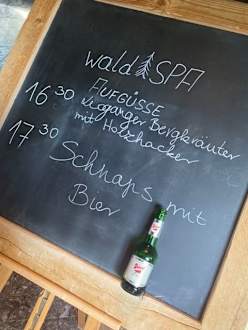 wald SPA
AUFGÜSSE
16 30 Leoganger Bergkräuter
mit Holzhacker
17 30 Schnaps mit
Bier